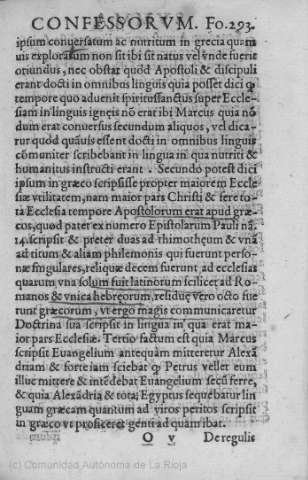 CONFESSORVM. Fo.293.
ipsum conuersatum ac nutritum in grecia quam
uis exploratum non sit ibi sit natus vel vnde fuerit
oriundus, nec obstat quòd Apostoli & discipuli
erant docti in omnibus linguis quia posset dici q̃
tempore quo aduenit spiritussanctus super Eccle-
siam in linguis igneis nõ erat ibi Marcus quia nõ
dum erat conuersus secundum aliquos, vel dica-
tur quòd quãuis essent docti in omnibus linguis
cõmuniter scribebant in lingua in qua nutriti &
humanitus instructi erant. Secundo potest dici
ipsum in græco scripsisse propter maiorem Eccle
siæ vtilitatem, nam maior pars Christi & fere to-
ta Ecclesia tempore Apostolorum erat apud græ-
cos, quod patet ex numero Epistolarum Pauli nã.
14. scripsit & preter duas ad thimotheum & vnã
ad titum & aliam philemonis qui fuerunt perso-
næ singulares, reliquæ decem fuerunt ad ecclesias
quarum vna solum fuit latinorum scilicet ad Ro-
manos & vnica hebreorum, reliduę vero octo fue
runt græcorum, vt ergo magis communicaretur
Doctrina sua scripsit in lingua in qua erat ma-
ior pars Ecclesiæ. Tertio factum est quia Marcus
scripsit Euangelium antequàm mitteretur Alexã
driam & forte iam sciebat q̃ Petrus vellet eum
illuc mittere & intẽdebat Euangelium secũ ferre,
& quia Alexãdria & tota; Egyptus sequebatur lin
guam græcam quantum ad viros peritos scripsit
in græco vt proficeret genti ad quam ibat.
O v De regulis
(c) Comunidad Autónoma de La Rioja